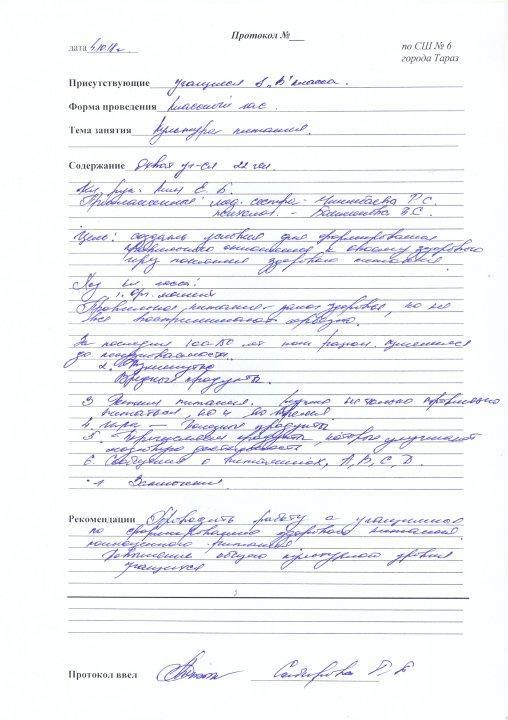 Протокол №___
дата 4.10.18г. по СШ № 6
города Тараз
Присутствующие учащиеся 8 „В" класса.
Форма проведения классный час.
Тема занятия Культура питания.
Содержание Охват уч-ся 22 чел.
Кл. рук. Ким Е. Б.
Приглашенные: мед. сестра - Г. С.
психолог. - З. С.
Цель: создать условия для формирования
правильного отношения к своему здоровью
через понятия здорового питания
Ход кл. часа:
1. Орг. момент
Правильное питание - залог здоровья, но не
все воспринимают серьезно.
За последние 100-150 лет наш рацион изменился
до неузнаваемости.
2.
Вредные продукты.
3 Режим питания. Нужно не только правильно
питаться, но и во время
4. игра — продукты
5. продукты, которые улучшают
6. Сообщения о витаминах, А, В, С, Д.
Заключение
Рекомендации Проводить работу с учащимися
по здорового питания
Повышение общего культурного уровня
учащихся
Протокол ввел